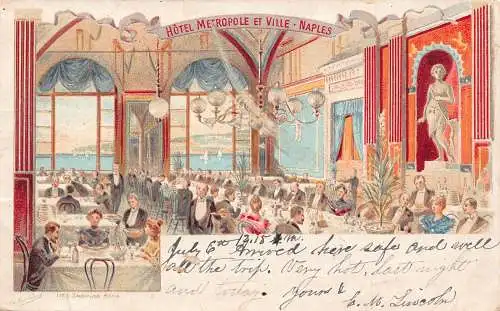 HÔTEL METROPOLE ET VILLE - NAPLES
July 6th 12.15 a.m.
Arrived here safe and well
all the trip. Very hot, last night
and today. Yours &
C. M. Lincoln